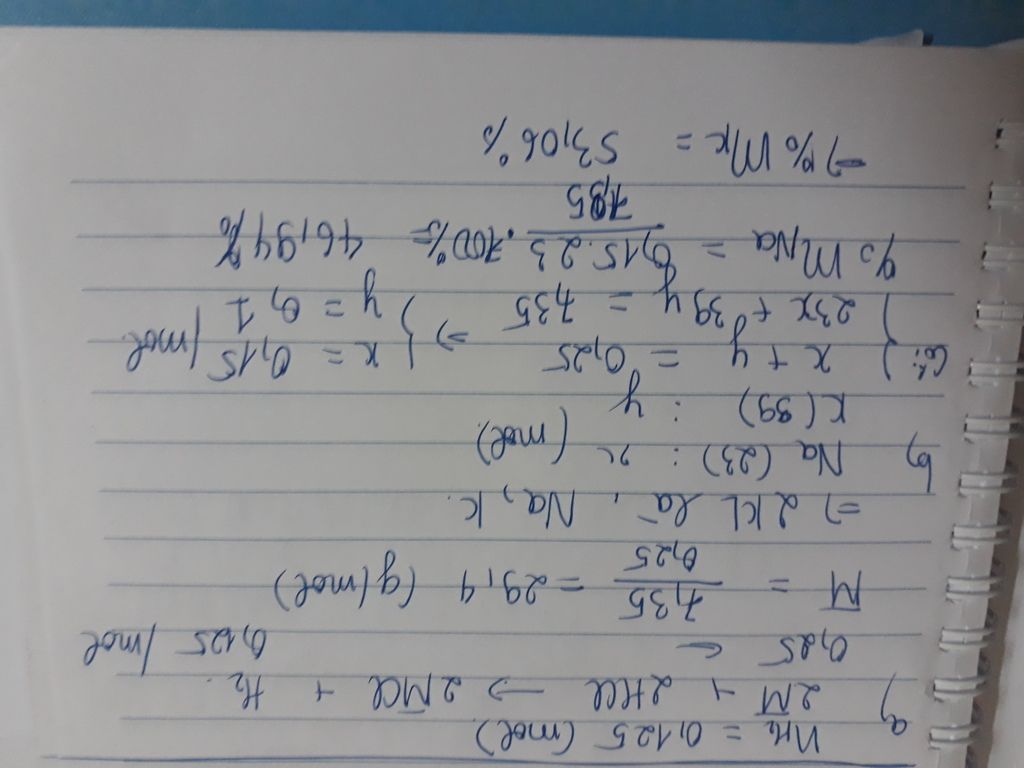 nH₂ = 0,125 (mol)
a) 2M̅ + 2HCl → 2M̅Cl + H₂
0,25 ← 0,125 /mol
M̅ = 7,35 / 0,25 = 29,4 (g/mol)
⇒ 2 KL là: Na, K.
b) Na (23) : x (mol)
K (39) : y
Có: { x + y = 0,25 ⇒ { x = 0,15 /mol
{ 23x + 39y = 7,35 { y = 0,1
% mNa = 0,15.23 / 7,35 .100% = 46,94%
→ % mK = 53,06%